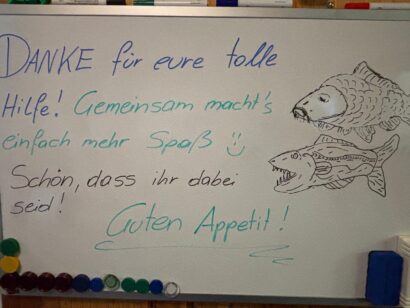 DANKE für eure tolle
Hilfe! Gemeinsam macht's
einfach mehr Spaß
Schön, dass ihr dabei
seid!
Guten Appetit!